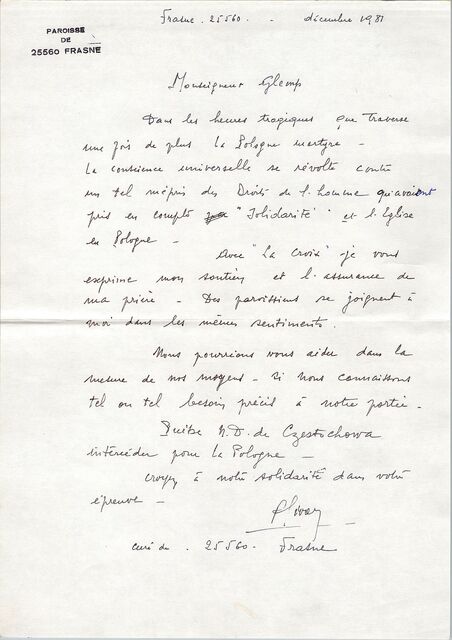 Frasne. 25560. - décembre 1981
PAROISSE
DE
25560 FRASNE
Monseigneur Glemp
Dans les heures tragiques que traverse
une fois de plus la Pologne martyre -
la conscience universelle se révolte contre
un tel mépris des Droits de l'homme qu'avaient
pris en compte "Solidarité" et l'Eglise
en Pologne -
Avec "La Croix" je vous
exprime mon soutien et l'assurance de
ma prière - Des paroissiens se joignent à
moi dans les mêmes sentiments.
Nous pourrions vous aider dans la
mesure de nos moyens - si nous connaissons
tel ou tel besoin précis à notre portée.
Puisse N.D. de Czestochowa
intercéder pour la Pologne -
croyez à notre solidarité dans votre
épreuve -
curé de . 25560 . Frasne